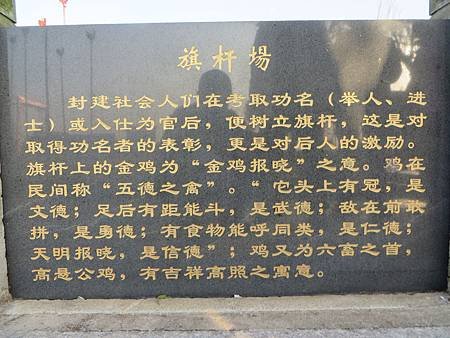 旗杆場
封建社会人们在考取功名（举人、进
士）或入仕为官后，便树立旗杆，这是对
取得功名者的表彰，更是对后人的激励。
旗杆上的金鸡为“金鸡报晓”之意。鸡在
民间称“五德之禽”。“它头上有冠，是
文德；足后有距能斗，是武德；敌在前敢
拼，是勇德；有食物能呼同类，是仁德；
天明报晓，是信德”；鸡又为六畜之首，
高是公鸡，有吉祥高照之寓意。